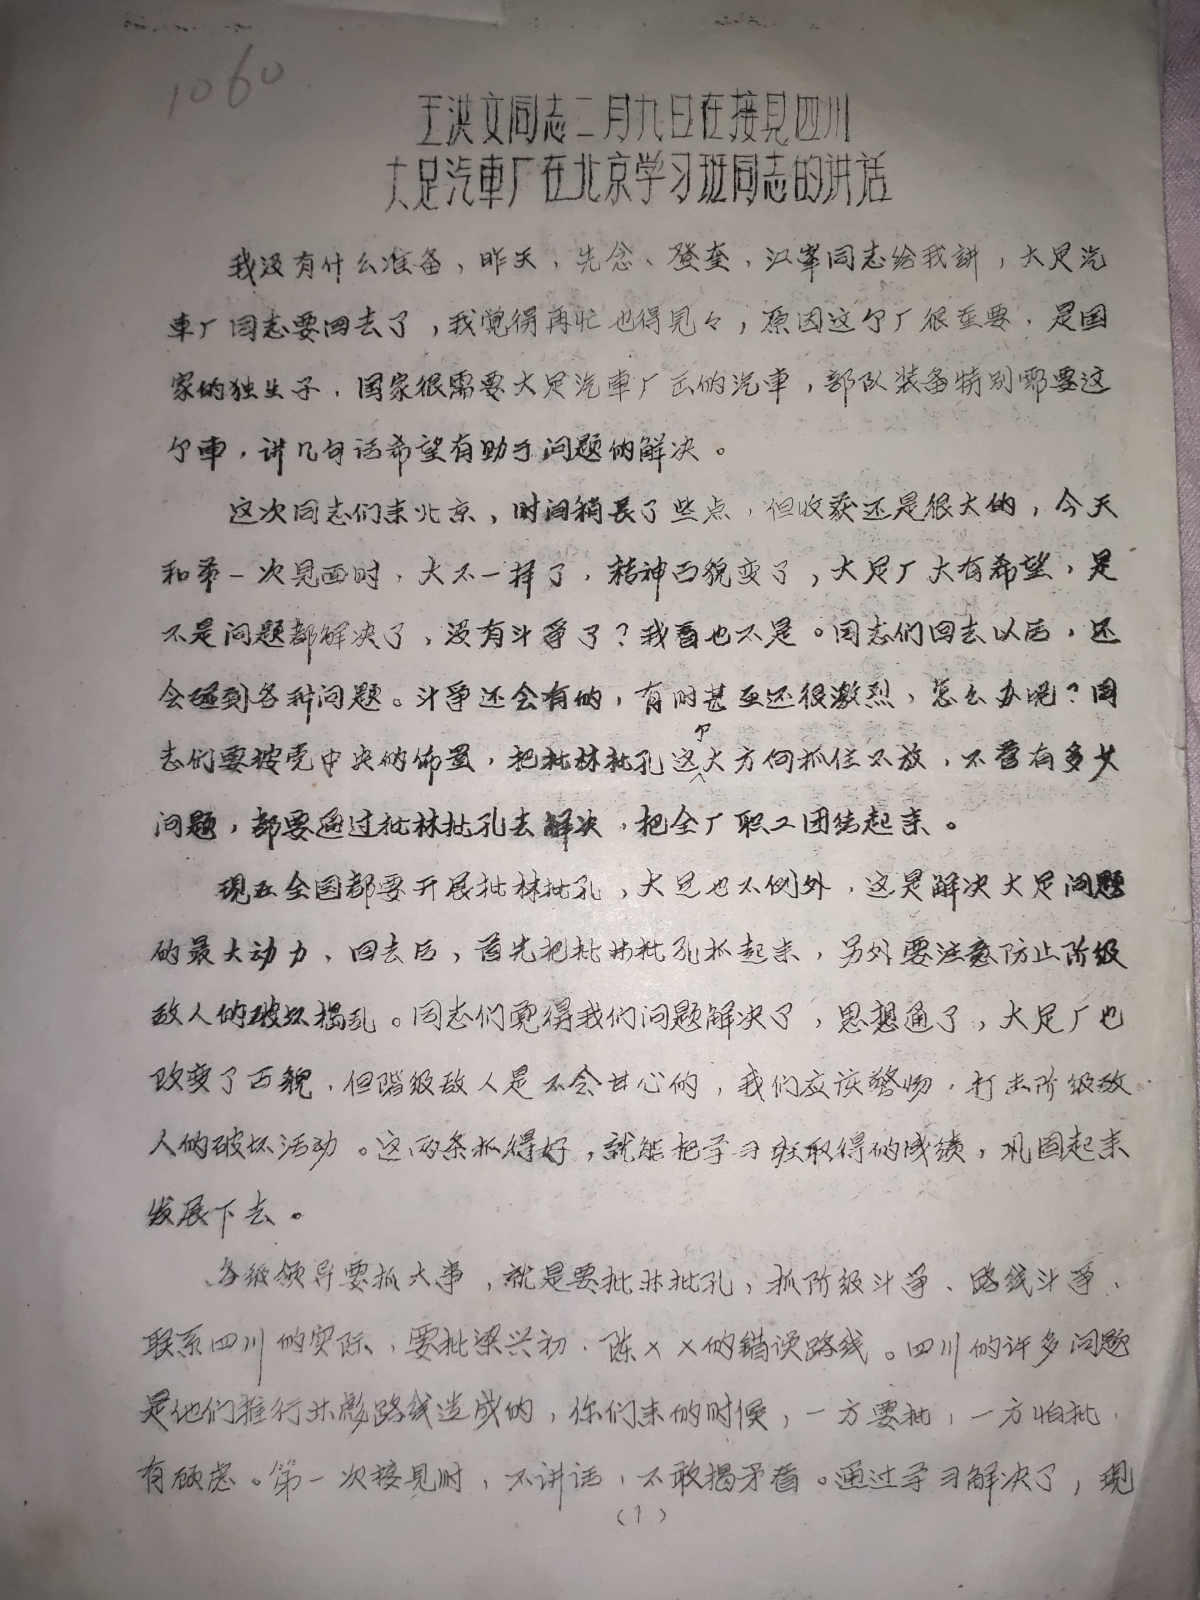 1060
王洪文同志二月九日在接見四川
大足汽車厂在北京学习班同志的讲话
我没有什么准备，昨天，先念、登奎、江峯同志给我讲，大足汽
車厂同志要回去了，我觉得再忙也得见々，原因这个厂很重要，是国
家的独生子，国家很需要大足汽車厂出的汽車，部队装备特别需要这
个車，讲几句话希望有助于问题的解决。
这次同志们来北京，时间稍长了些点，但收获还是很大的，今天
和第一次見面时，大不一样了，精神面貌变了，大足厂大有希望，是
不是问题都解决了，没有斗争了？我看也不是。同志们回去以后，还
会碰到各种问题。斗争还会有的，有时甚至还很激烈，怎么办呢？同
志们要按党中央的佈置，把批林批孔这个大方向抓住不放，不管有多少
问题，都要通过批林批孔去解决，把全厂职工团结起来。
现在全国都要开展批林批孔，大足也不例外，这是解决大足问题
的最大动力，回去后，首先把批林批孔抓起来，另外要注意防止阶级
敌人的破坏捣乱。同志们覚得我们问题解决了，思想通了，大足厂也
改变了面貌，但階级敌人是不会甘心的，我们应该警惕，打击阶级敌
人的破坏活动。这两条抓得好，就能把学习班取得的成绩，巩固起来
发展下去。
各级领导要抓大事，就是要批林批孔，抓阶级斗争、路线斗争、
联系四川的实际，要批梁兴初、陈××的错误路线。四川的许多问题
是他们推行林彪路线造成的，你们来的时候，一方要批，一方怕批，
有顾虑。第一次接见时，不讲话，不敢揭矛盾。通过学习解决了，现
（1）